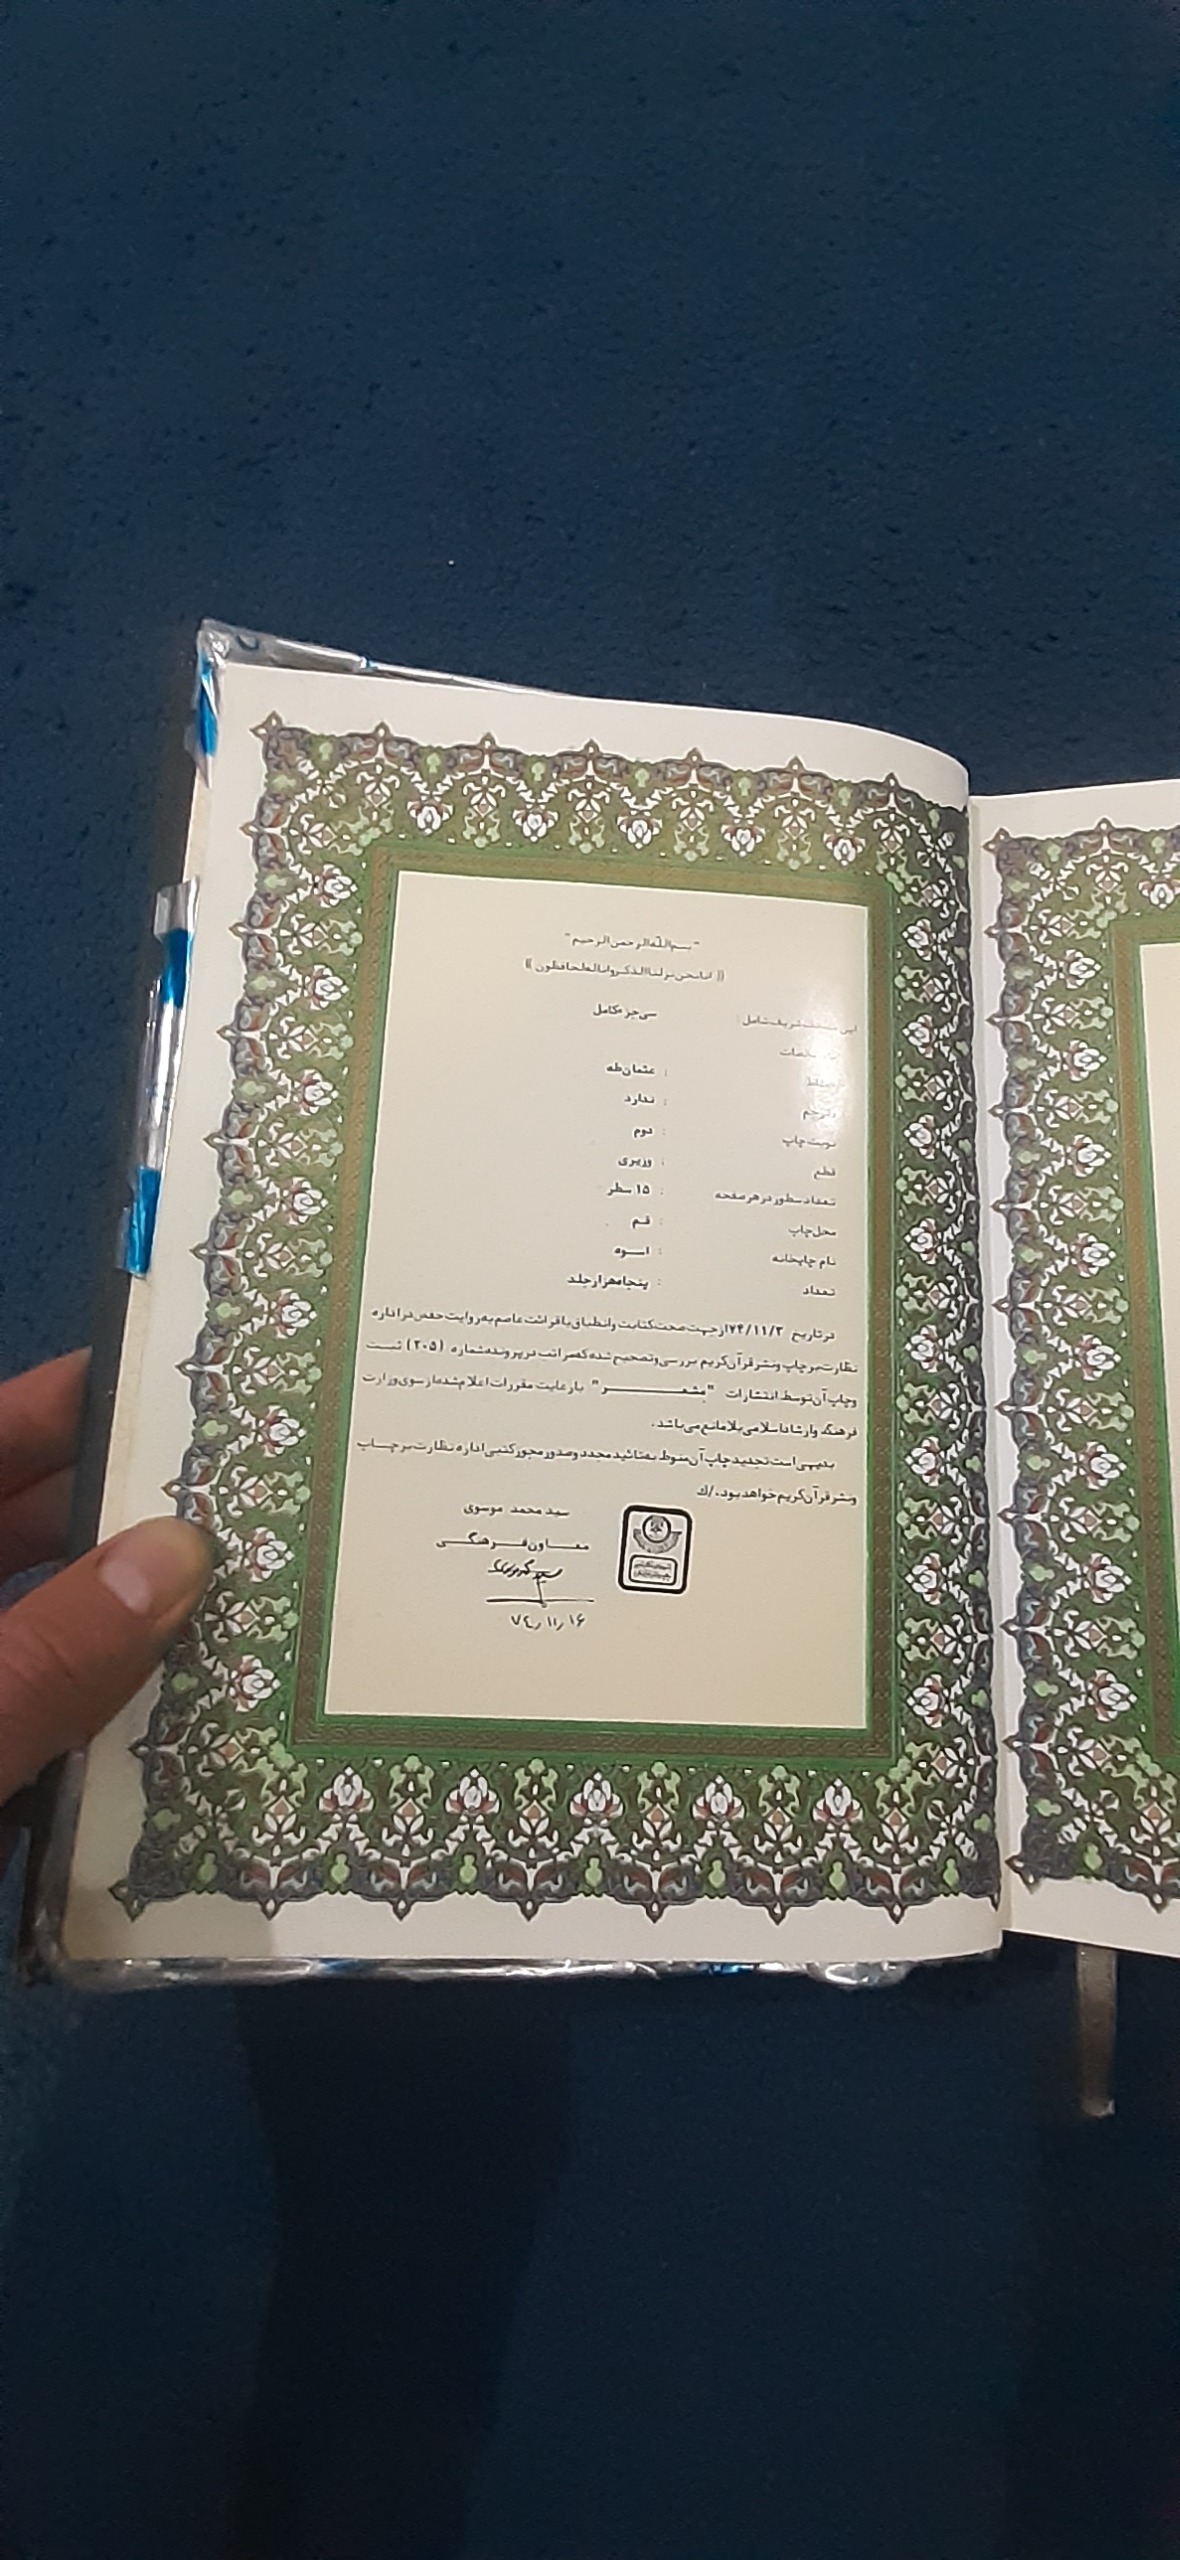 "بسم الله الرحمن الرحیم"
(( انا نحن نزلنا الذکر وانا له لحافظون ))
این مصحف شریف شامل : سی جزء کامل
خطاط : عثمان طه
مترجم : ندارد
نوبت چاپ : دوم
قطع : وزیری
تعداد سطور در هر صفحه : ۱۵ سطر
محل چاپ : قم
نام چاپخانه : اسوه
تعداد : پنجاه هزار جلد
در تاریخ ۷۴/۱۱/۲ از جهت صحت کتابت و انطباق با قرائت عاصم به روایت حفص در اداره
نظارت بر چاپ و نشر قرآن کریم بررسی و تصحیح شده که مراتب در پرونده شماره (۲۰۵) ثبت
و چاپ آن توسط انتشارات "مشعر" با رعایت مقررات اعلام شده از سوی وزارت
فرهنگ و ارشاد اسلامی بلامانع می باشد.
بدیهی است تجدید چاپ آن منوط به تائید مجدد و صدور مجوز کتبی اداره نظارت بر چاپ
و نشر قرآن کریم خواهد بود./ك
سید محمد موسوی
معاون فرهنگی
۷۴/۱۱/۱۶